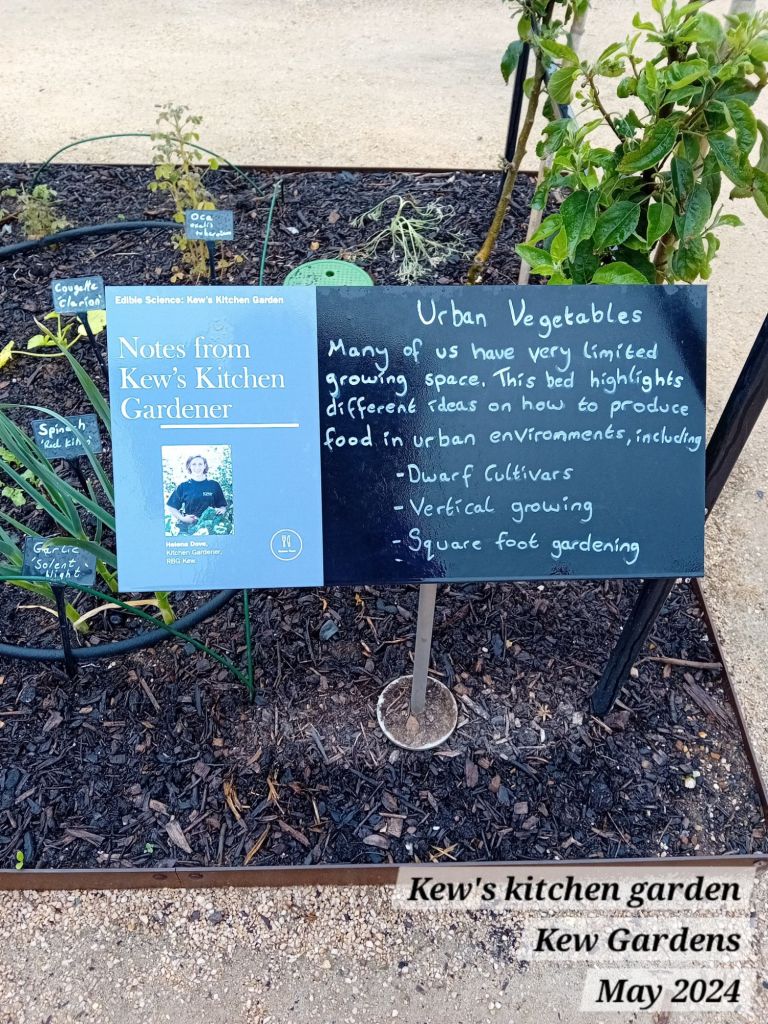 Oca
oxalis
tuberosa
Cougette
'Clarion'
Edible Science: Kew's Kitchen Garden
Notes from
Kew's Kitchen
Gardener
Helena Dove,
Kitchen Gardener,
RBG Kew
Urban Vegetables
Many of us have very limited
growing space. This bed highlights
different ideas on how to produce
food in urban environments, including
-Dwarf Cultivars
-Vertical growing
-Square foot gardening
Spinach
Garlic
'Solent
Wight'
Kew's kitchen garden
Kew Gardens
May 2024